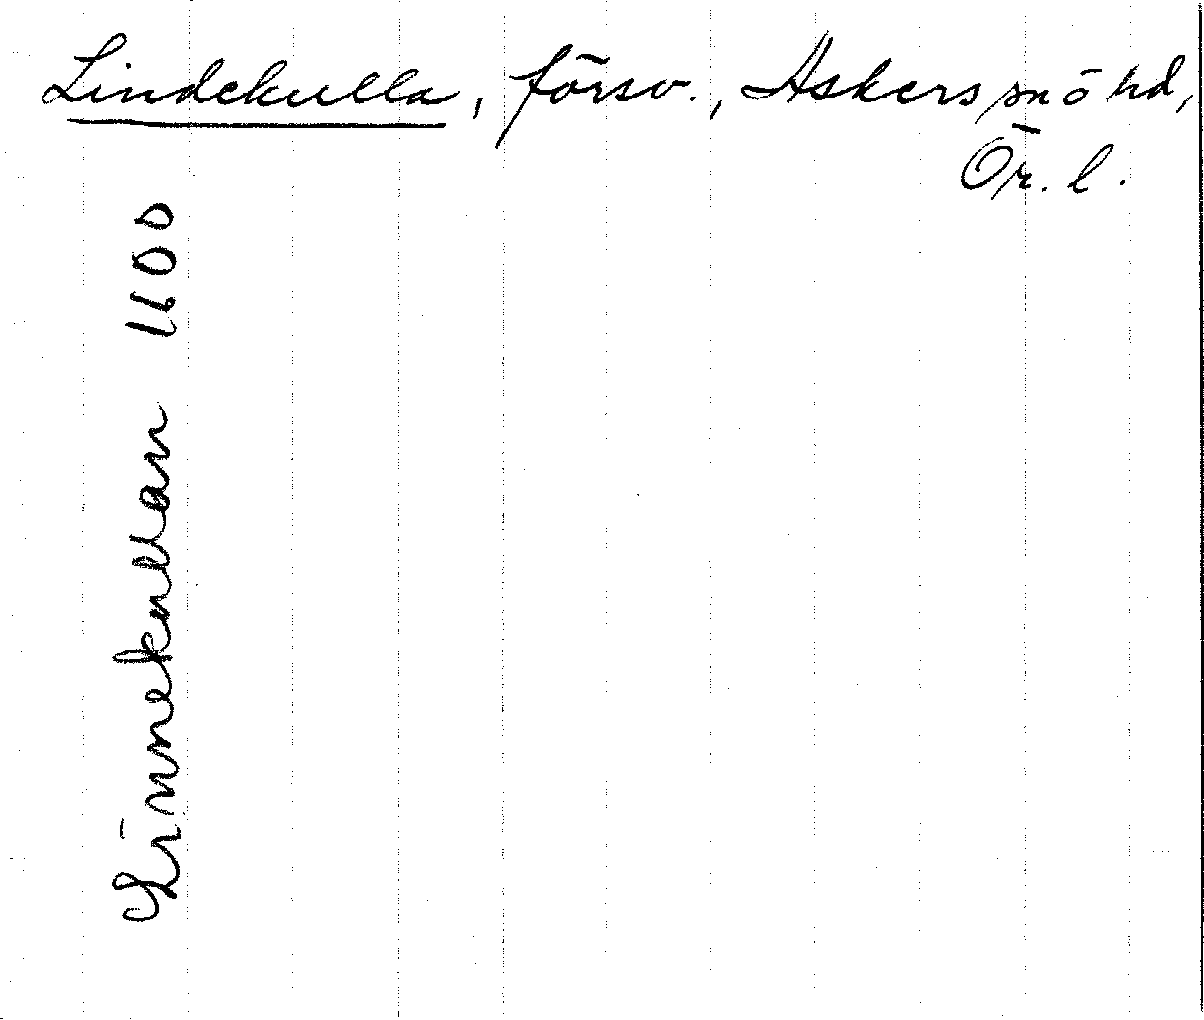 Lindekulla, försv., Askers sn ö hd,
Ör. l.
Linnekullan 1600